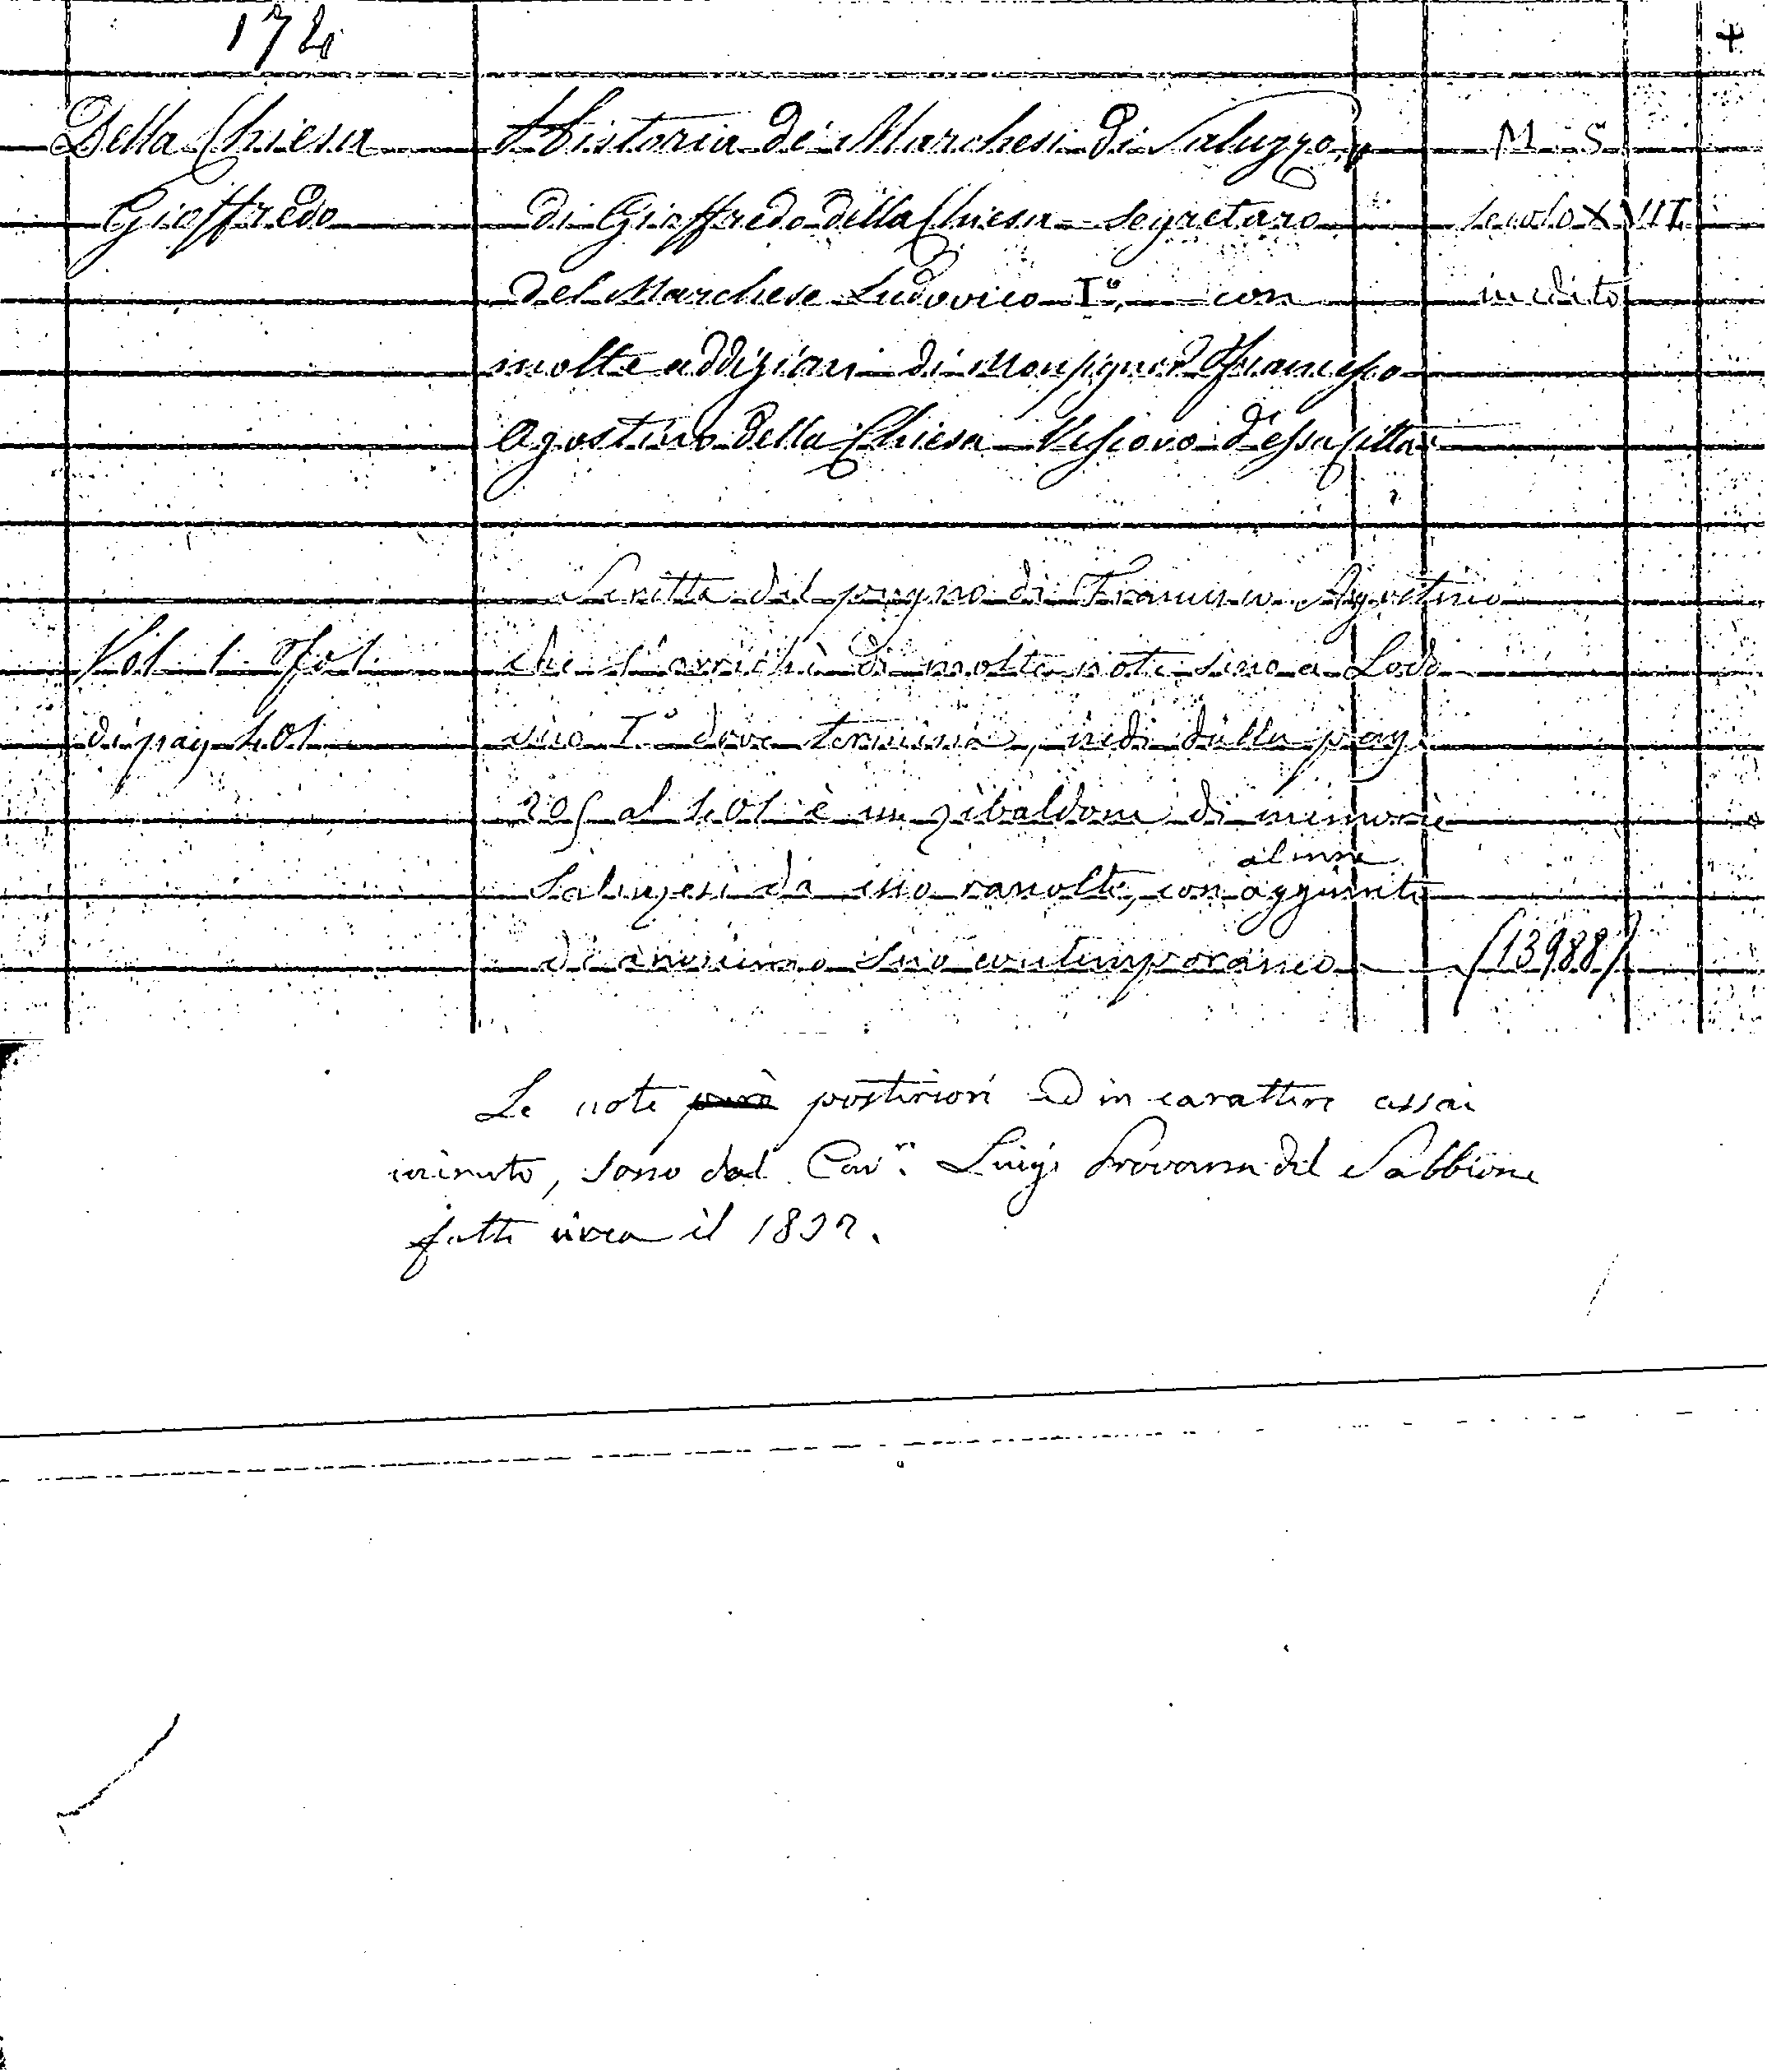 174
Della Chiesa Historia de' Marchesi di Saluzzo, M. S.
Gioffredo di Gioffredo della Chiesa segretaro secolo XVII
del Marchese Ludovico I°, con inedito
molte addizioni di Monsignor Francesco
Agostino della Chiesa Vescovo d'essa Citta
Scritta dal pugno di Francesco Agostino
Vol. 1. Fol. che l'arrichì di molte note sino a Lodo
di pag. 401 vico I° dove termina, indi dalla pag.
205 al 401 è un zibaldone di memorie
Saluzesi da esso racolte, con alcune aggiunte
di anonimo suo contemporaneo (13988)
Le note però posteriori ed in carattere assai
minuto, sono del Cav.r Luigi Provana del Sabbione
fatte circa il 1832.